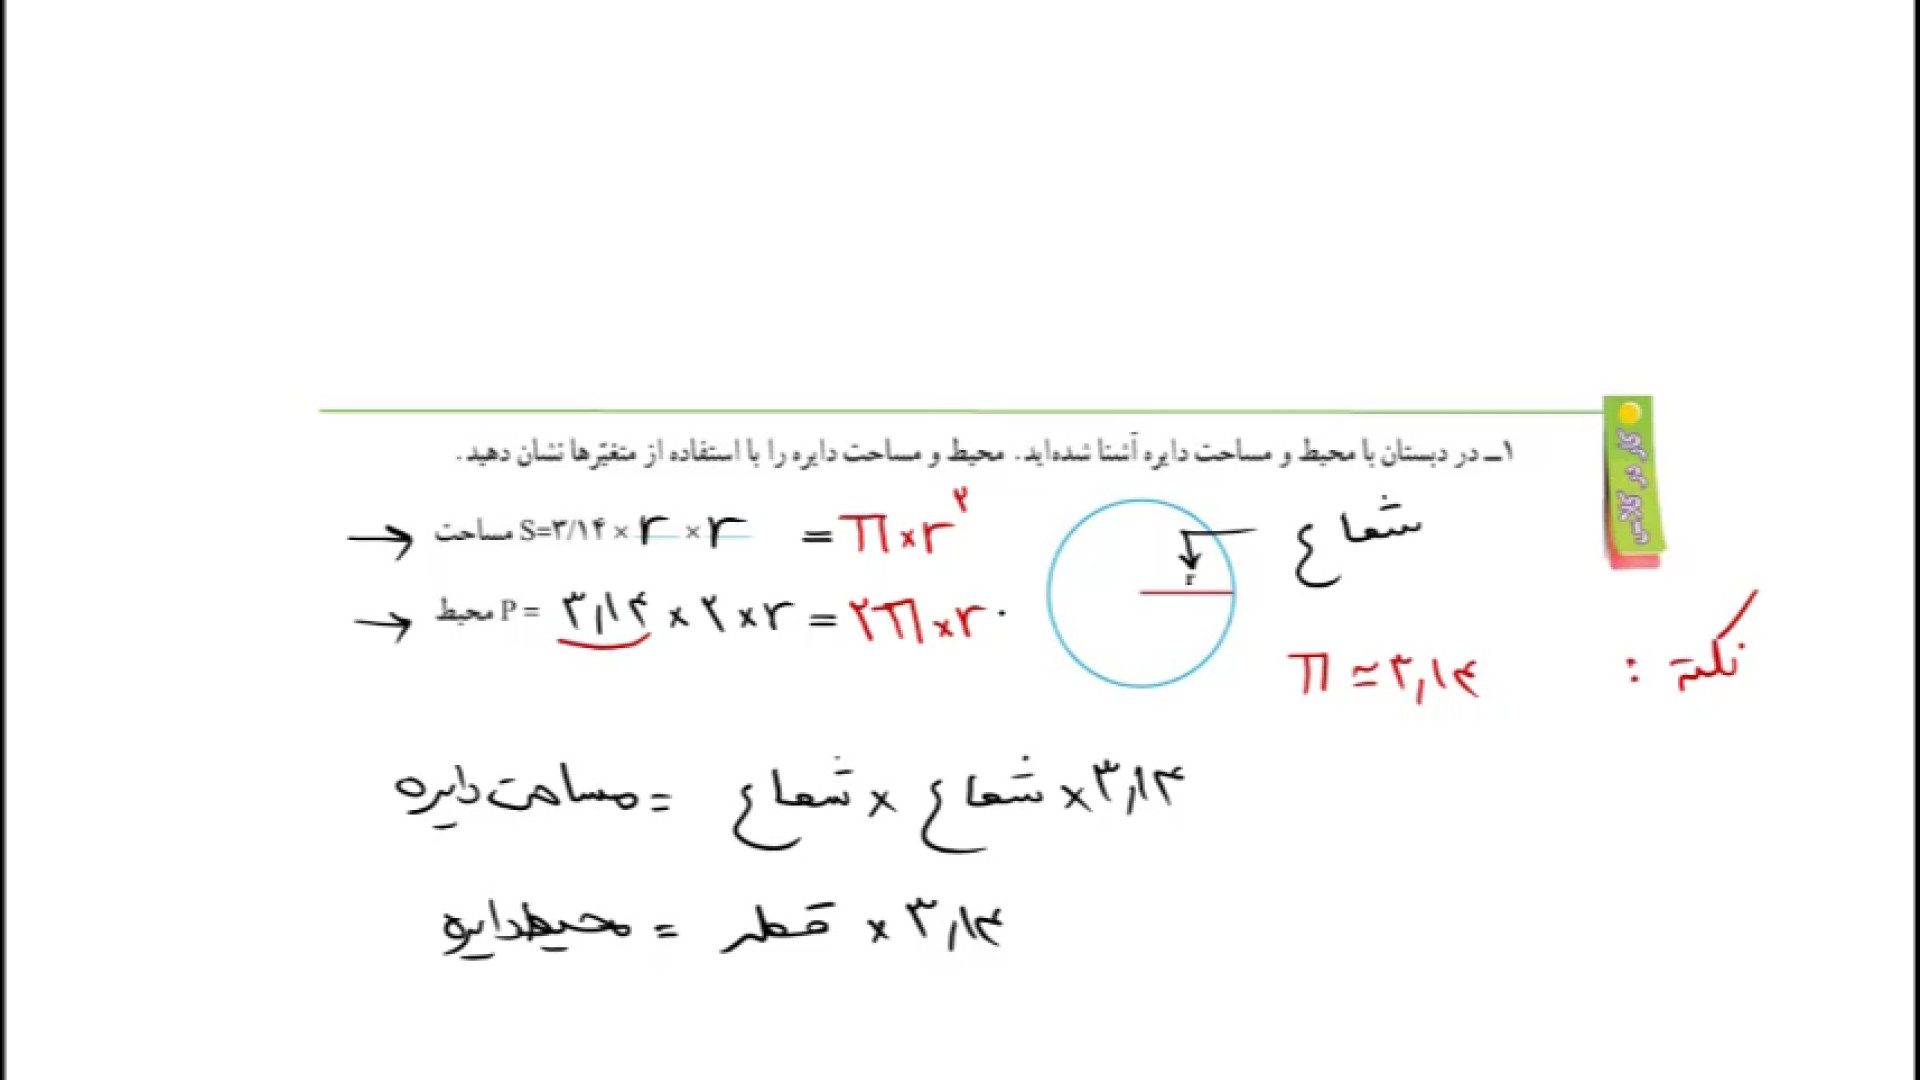 کار در کلاس
۱ــ در دبستان با محیط و مساحت دایره آشنا شده‌اید. محیط و مساحت دایره را با استفاده از متغیّرها نشان دهید.
مساحت S=۳/۱۴ × r × r = π × r²
شعاع
r
محیط P = ۳,۱۴ × ۲ × r = ۲π × r
نکته : π ≃ ۳,۱۴
مساحت دایره = شعاع × شعاع × ۳,۱۴
محیط دایره = قطر × ۳,۱۴